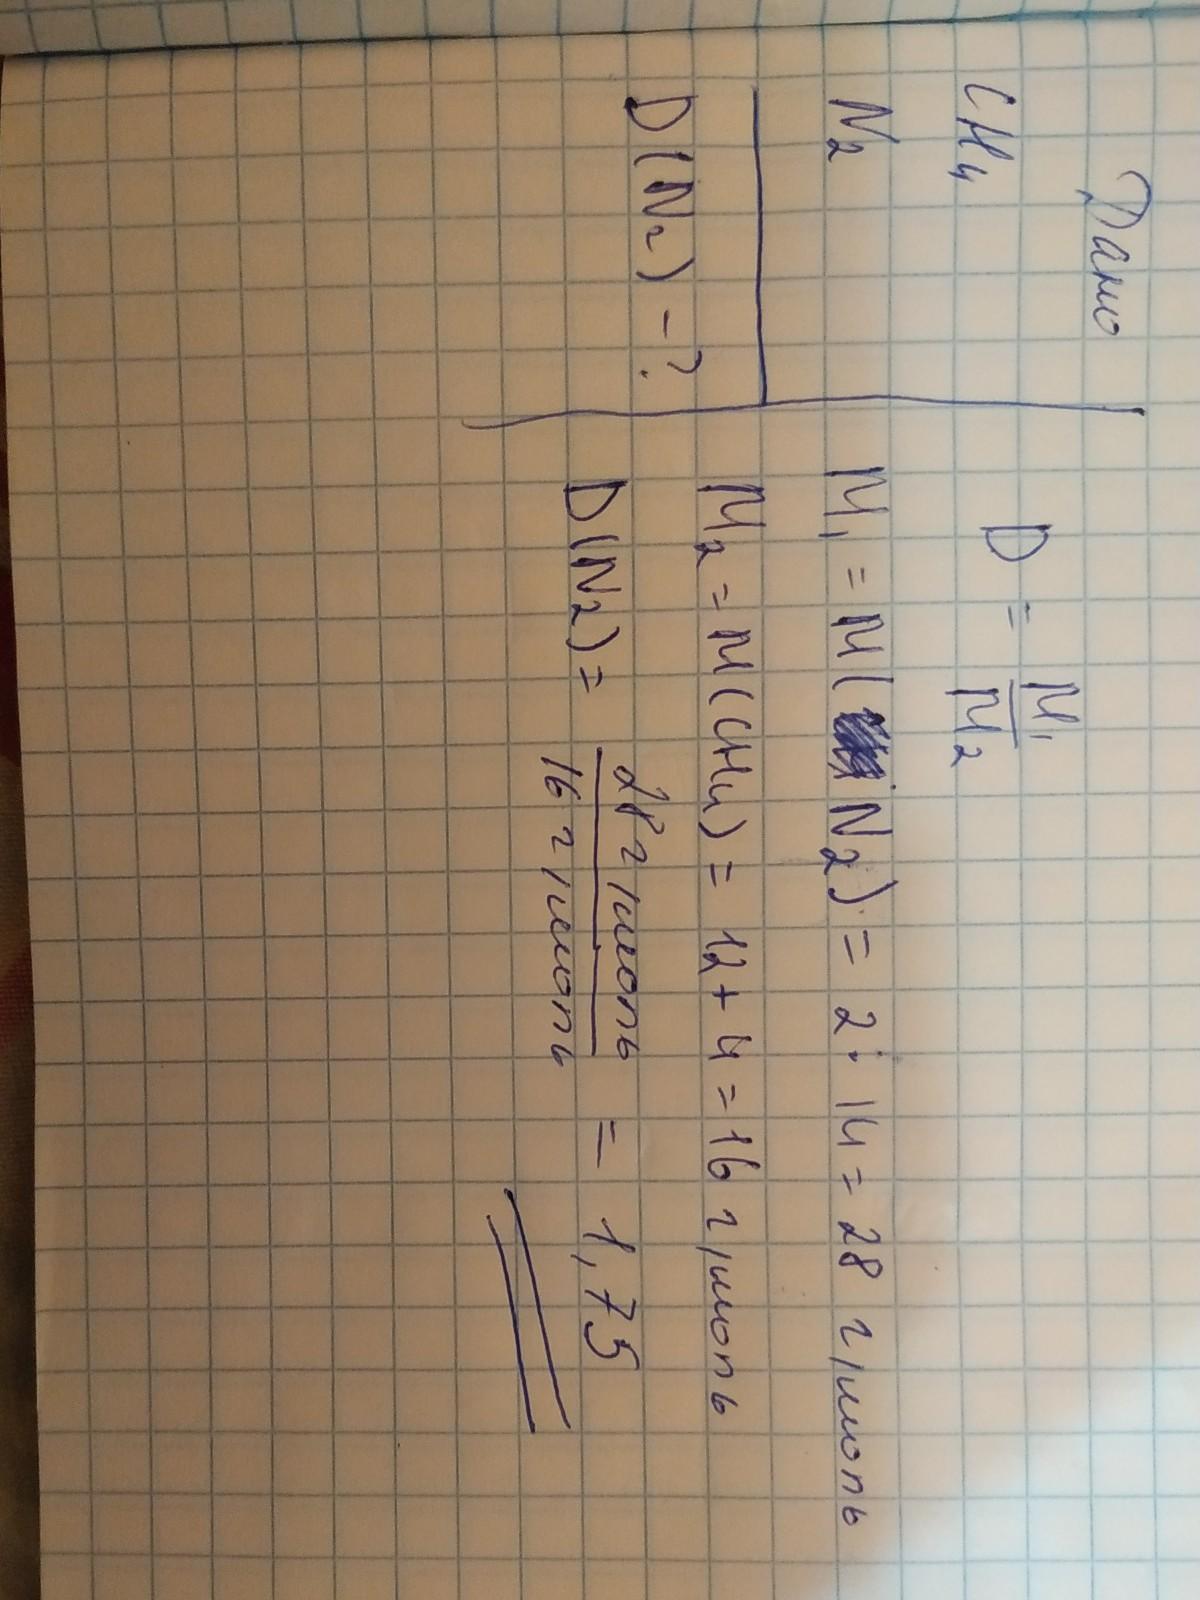 Дано
CH₄
N₂
D(N₂) - ?
D = M₁/M₂
M₁ = M(N₂) = 2 · 14 = 28 г/моль
M₂ = M(CH₄) = 12 + 4 = 16 г/моль
D(N₂) = 28 г/моль / 16 г/моль = 1,75